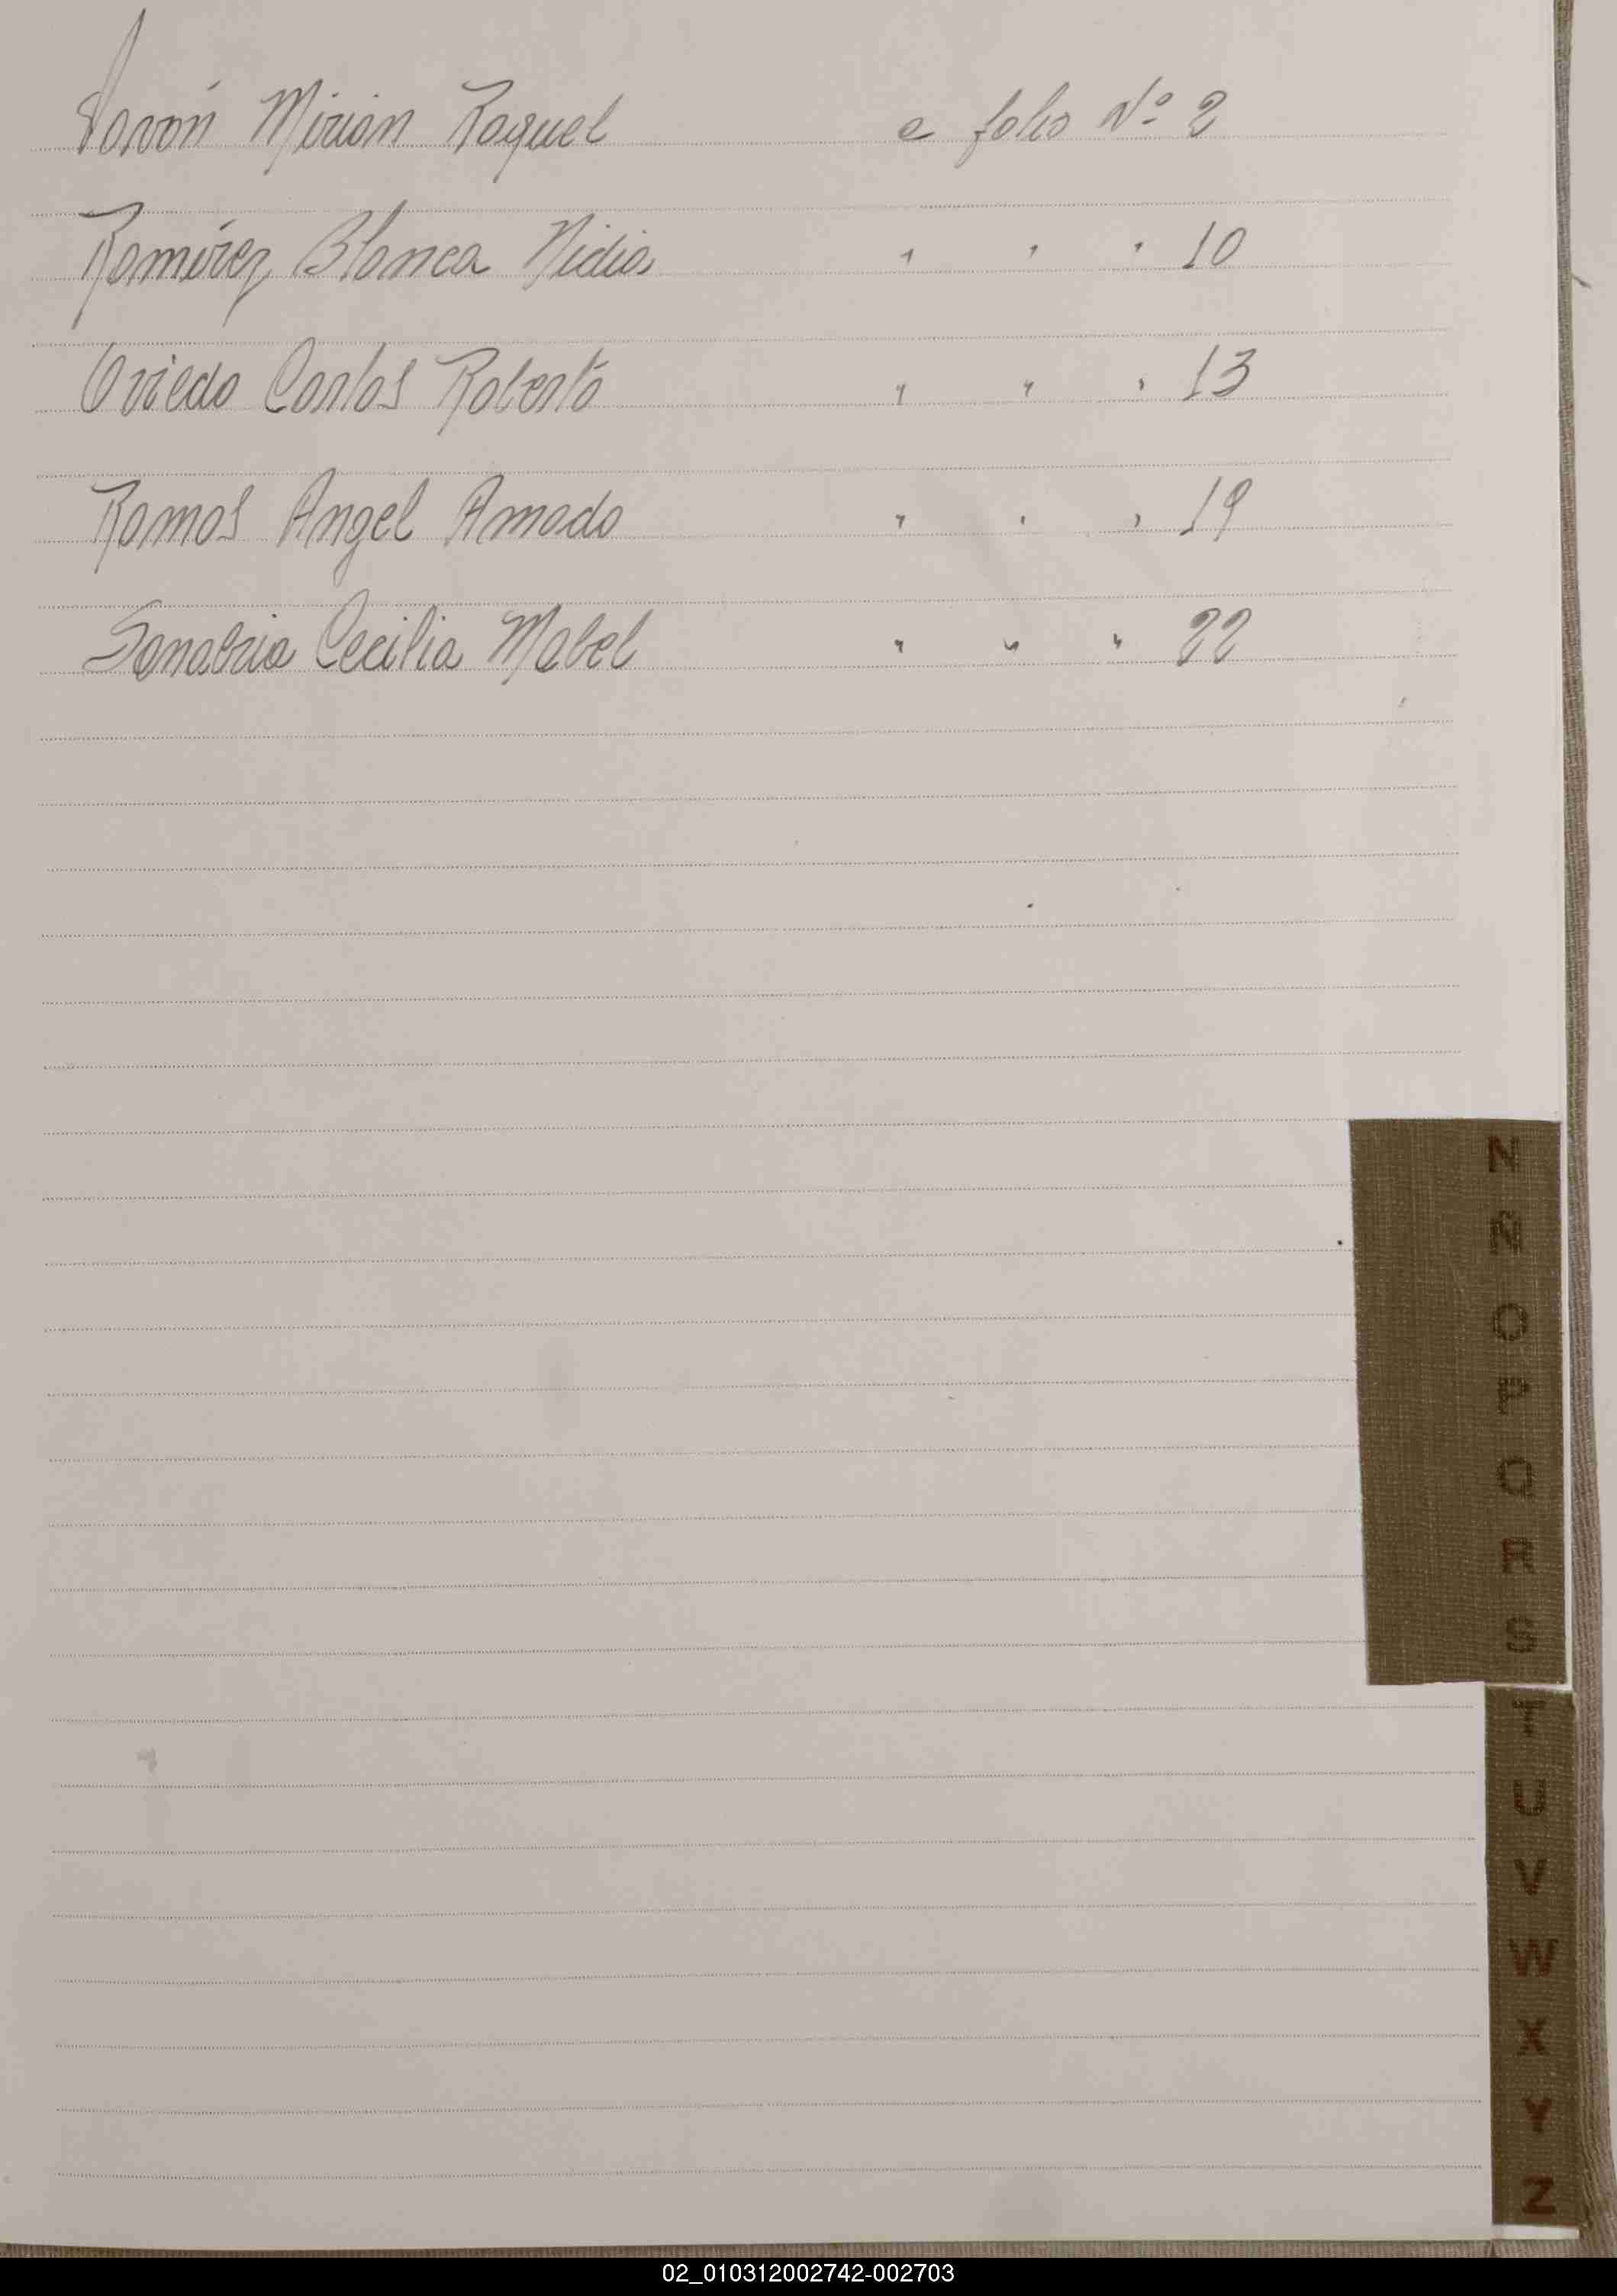 Pavón Mirian Raquel a folio Nº 2
Ramírez Blanca Nidia " " " 10
Oviedo Carlos Roberto " " " 13
Ramos Angel Amado " " " 19
Sanabria Cecilia Mabel " " " 22
N
Ñ
O
P
Q
R
S
T
U
V
W
X
Y
Z
02_010312002742-002703